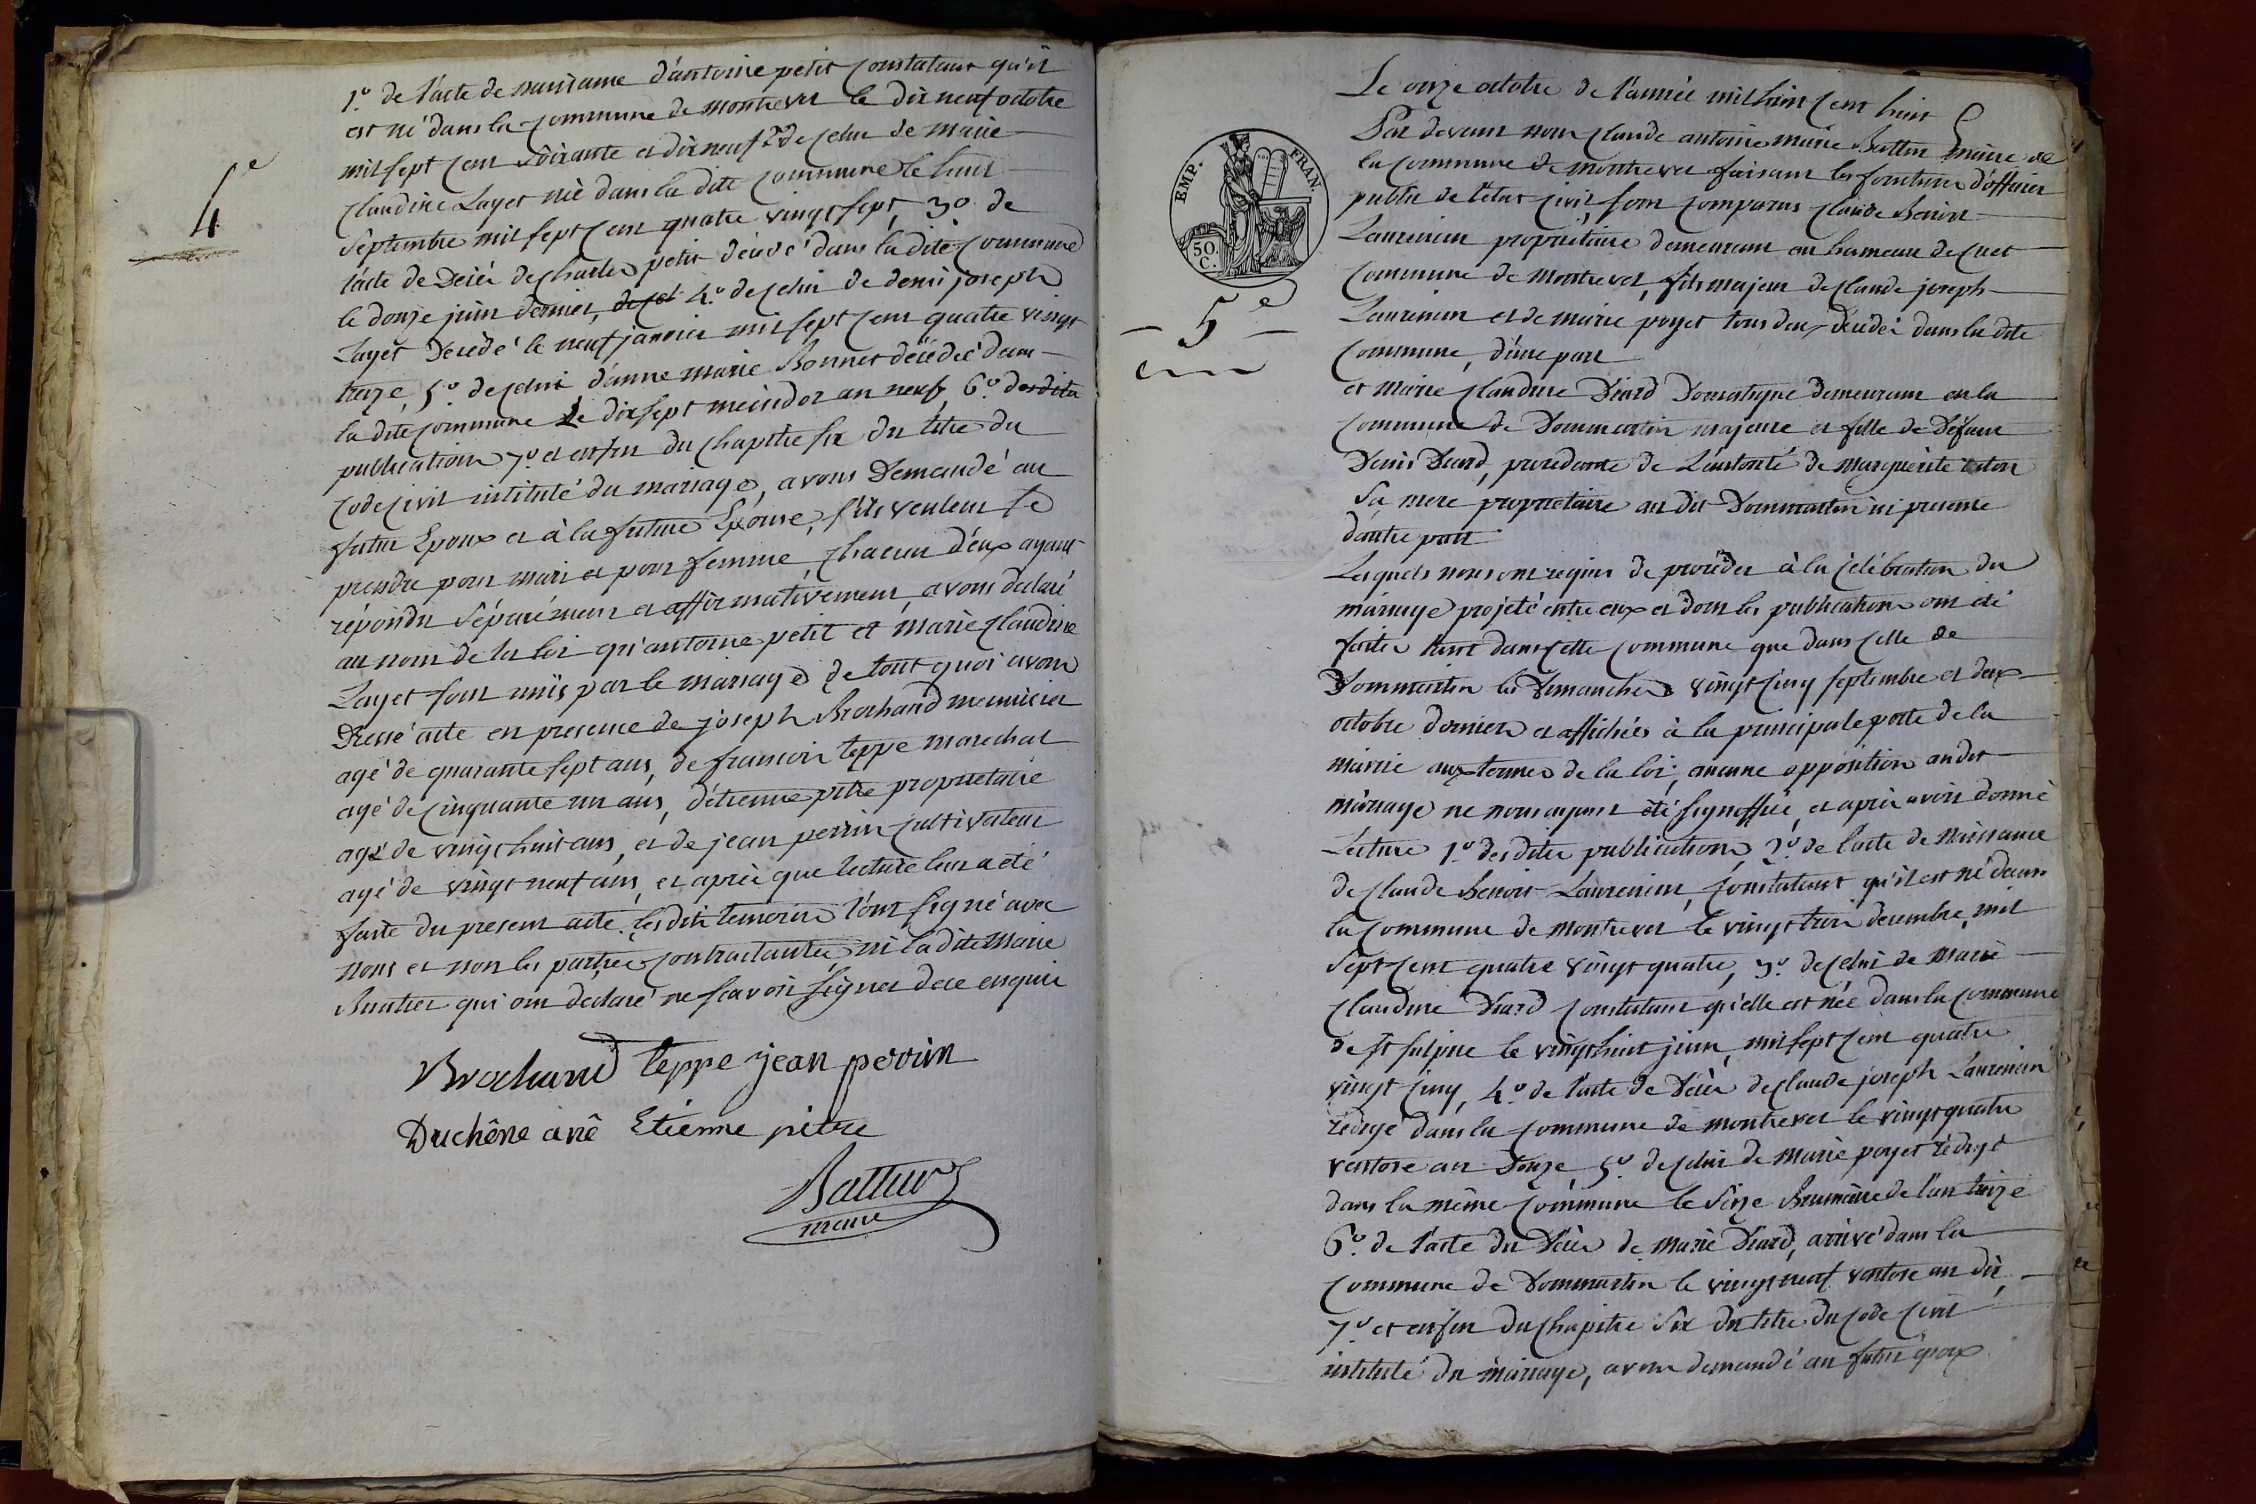 4e
1º. de l'acte de naissance d'antoine petit constatant qu'il
est né dans la commune de montrevel le dix neuf octobre
mil sept cent soixante et dix neuf 2º de celui de marie
claudine Layet née dans la dite commune le huit
septembre mil sept cent quatre vingt sept, 3º de
l'acte de Décès de charles petit décédé dans la dite commune
le donze juin dernier, de cel 4º. de celui de denis joseph
Layet Décédé le neuf janvier mil sept cent quatre vingt
treize, 5º. de celui d'anne marie Bonnet décédée dans
la dite commune Le dix sept messidor an neuf, 6º. desdites
publications 7º. et enfin du chapitre six du titre du
code civil intitulé du mariage, avons Demandé au
futur Epoux et à la future Epouse, s'ils veulent se
prendre pour mari et pour femme, chacun d'eux ayant
répondu séparément et affirmativement, avons declaré
au nom de la loi qu'antoine petit et marie claudine
Layet sont unis par le mariage de tout quoi avons
Dressé acte en presence de joseph Brochand menuisier
agé de quarante sept ans, de francois teppe marechal
agé de cinquante un ans, d'etienne pitre proprietaire
agé de vingt huit ans, et de jean perrin cultivateur
agé de vingt neuf ans, et après que lecture leur a été
faite du present acte, les dits temoins l'ont signé avec
nous et non les parties contractantes, ni la dite Marie
qui ont declaré ne scavoir signer de ce enquis
Brochand teppe jean perrin
Duchêne ainé Etienne pitre
Battur
maire
EMP. FRAN.
50. C.
5e
Le onze octobre de l'année mil huit cent huit
Par devant nous claude antoine marie Battur maire de
la commune de montrevel faisant les fonctions d'officier
public de l'état civil, sont comparus claude Benoit
Laurencin proprietaire demeurant au hameau de Cuet
commune de Montrevel, fils majeur de claude joseph
Laurencin et de marie poyet tous deux décédés dans la dite
commune, d'une part
et Marie claudine Diard Domestique demeurant en la
commune de Dommartin majeure et fille de Défunt
Denis Diard, procedante de L'autorité de Marguerite
sa mere proprietaire au dit Dommartin ici presente
d'autre part
Lesquels nous ont requis de procéder à la célébration du
mariage projeté entre eux et dont les publications ont été
faites tant dans cette commune que dans celle de
Dommartin les Dimanches vingt cinq septembre et deux
octobre derniers et affichées à la principale porte de la
mairie aux termes de la loi, aucune opposition au dit
mariage ne nous ayant été signiffiée, et après avoir donné
Lecture 1º. desdites publications, 2º. de l'acte de Naissance
de claude Benoit Laurencin, constatant qu'il est né dans
la commune de Montrevel le vingt trois decembre, mil
sept cent quatre vingt quatre, 3º. de celui de Marie
claudine Diard constatant qu'elle est née dans la commune
de St sulpice le vingt huit juin, mil sept cent quatre
vingt cinq, 4º. de l'acte de Décès de claude joseph Laurencin
rédigé dans la commune de montrevel le vingt quatre
ventose an Douze 5º. de celui de Marie poyet rédigé
dans la même commune le seize Brumaire de l'an treize
6º. de l'acte du Décès de Marie Diard, arrivé dans la
commune de Dommartin le vingt neuf ventose an dix,
7º. et enfin du Chapitre Six du titre du code civil
intitulé du mariage, avons demandé au futur époux